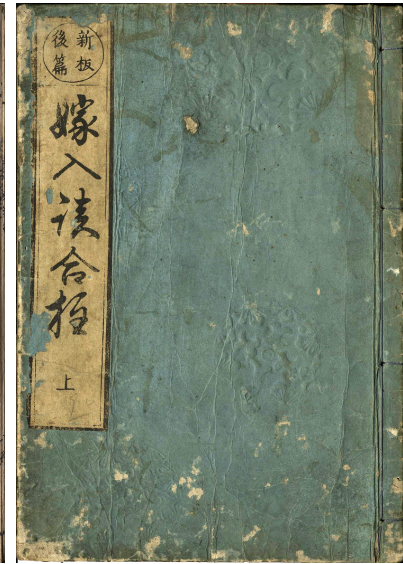 新板
後篇
嫁入談合柱
上